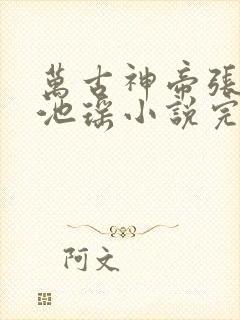 萬古神帝張
池瑤小說完
阿文